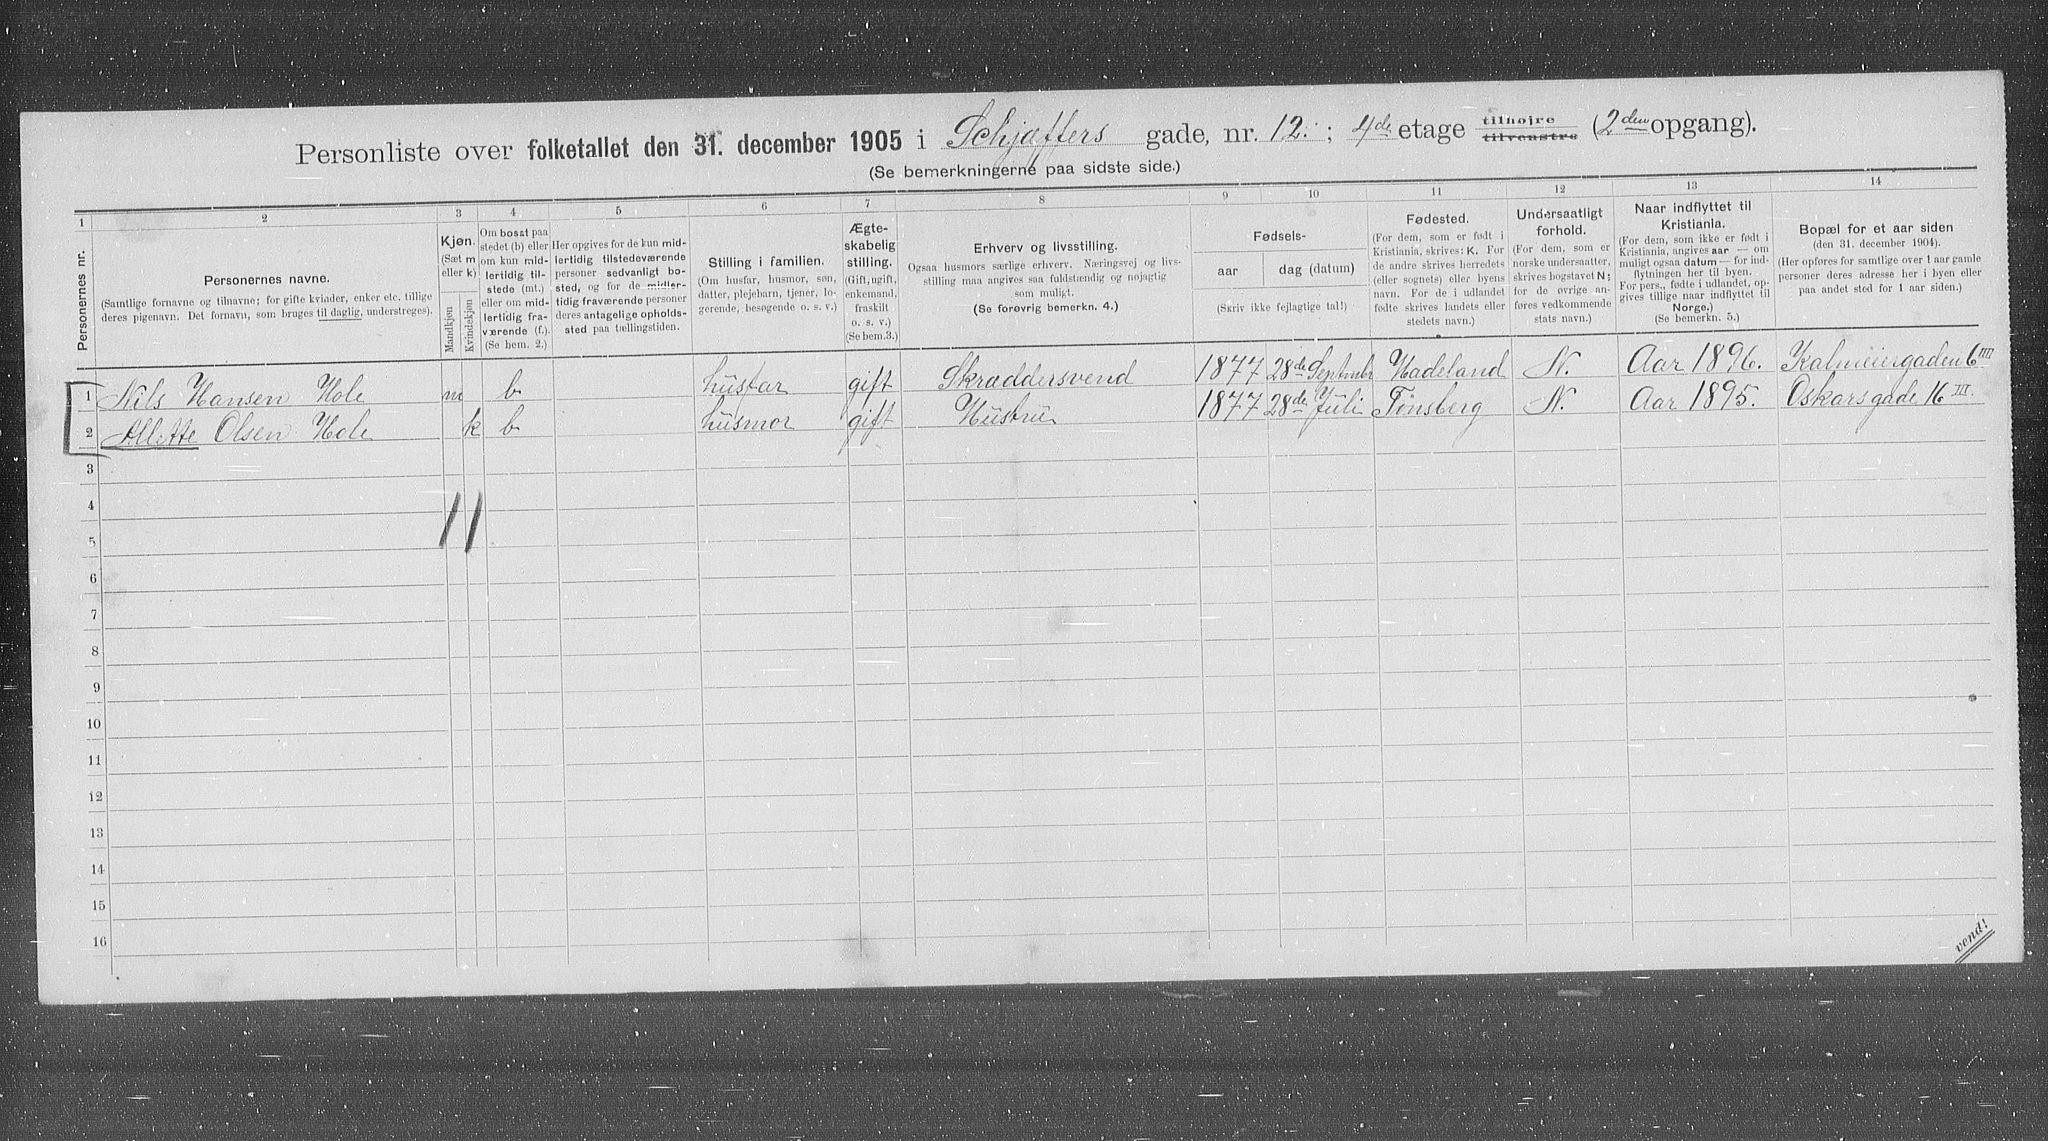 Personliste over folketallet den 31. december 1905 i Schjøffers gade, nr. 12. ; 4de etage tilhøjre tilvenstre (2den opgang).
(Se bemerkningerne paa sidste side.)
1 2 3 4 5 6 7 8 9 10 11 12 13 14
Personernes nr.
Personernes navne.
(Samtlige fornavne og tilnavne; for gifte kvinder, enker etc. tillige
deres pigenavn. Det fornavn, som bruges til daglig, understreges).
Kjøn.
(Sæt m
eller k)
Mandkjøn
Kvindekjøn
Om bosat paa
stedet (b) eller
om kun mid-
lertidig til-
stede (mt.)
eller om mid-
lertidig fra-
værende (f.).
(Se bem. 2.)
Her opgives for de kun mid-
lertidig tilstedeværende
personer sedvanligt bo-
sted, og for de midler-
tidig fraværende personer
deres antagelige opholds-
sted paa tællingstiden.
Stilling i familien.
(Om husfar, husmor, søn,
datter, plejebarn, tjener, lo-
gerende, besøgende o. s. v.)
Ægte-
skabelig
stilling.
(Gift, ugift,
enkemand,
fraskilt
o. s. v.)
(Se bem.3.)
Erhverv og livsstilling.
Ogsaa husmors særlige erhverv. Næringsvej og livs-
stilling maa angives saa fuldstændig og nøjagtig
som muligt.
(Se forøvrig bemerkn. 4.)
Fødsels-
aar
dag (datum)
(Skriv ikke fejlagtige tal!)
Fødested.
(For dem, som er født i
Kristiania, skrives: K. For
de andre skrives herredets
(eller sognets) eller byens
navn. For de i udlandet
fødte skrives landets eller
stedets navn.)
Undersaatligt
forhold.
(For dem, som er
norske undersaatter,
skrives bogstavet N;
for de øvrige an-
føres vedkommende
stats navn.)
Naar indflyttet til
Kristiania.
(For dem, som ikke er født i
Kristiania, angives aar — om
muligt ogsaa datum — for ind-
flytningen her til byen.
For pers., fødte i udlandet, op-
gives tillige naar indflyttet til
Norge.)
(Se bemerkn. 5.)
Bopæl for et aar siden
(den 31. december 1904).
(Her opføres for samtlige over 1 aar gamle
personer deres adresse her i byen eller
paa andet sted for 1 aar siden.)
1 Nils Hansen Hole m b husfar gift Skræddersvend 1877 28de September Hadeland N. Aar 1896. Kalmeiergaden 6 IIII
2 Allette Olsen Hole k b husmor gift Hustru 1877 28de Juli Tønsberg N. Aar 1895. Oskarsgade 16 III.
3
4
1 1
5
6
7
8
9
10
11
12
13
14
15
16
vend!